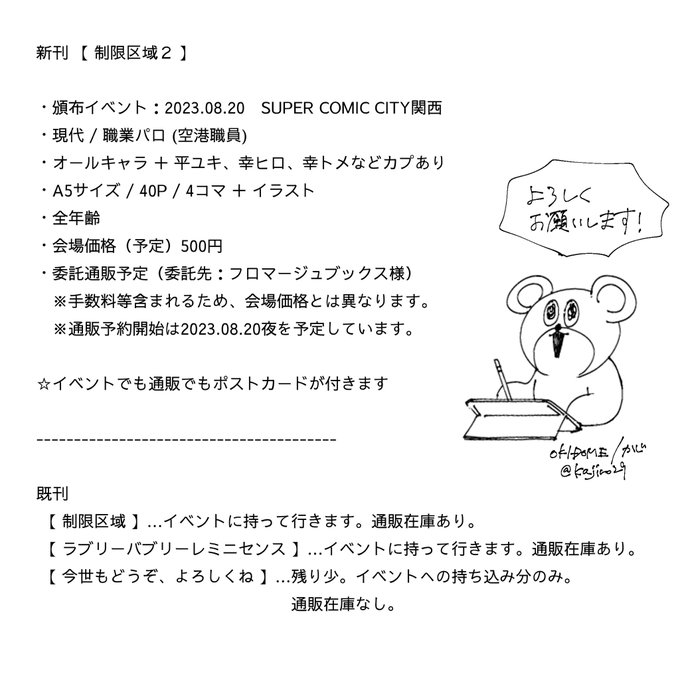 新刊 【 制限区域２ 】
・頒布イベント：2023.08.20　SUPER COMIC CITY関西
・現代 / 職業パロ (空港職員)
・オールキャラ ＋ 平ユキ、幸ヒロ、幸トメなどカプあり
・A5サイズ / 40P / 4コマ ＋ イラスト
・全年齢
・会場価格（予定）500円
・委託通販予定（委託先：フロマージュブックス様）
※手数料等含まれるため、会場価格とは異なります。
※通販予約開始は2023.08.20夜を予定しています。
☆イベントでも通販でもポストカードが付きます
よろしく
お願いします!
----------------------------------------
@kajico29
既刊
【 制限区域 】…イベントに持って行きます。通販在庫あり。
【 ラブリーバブリーレミニセンス 】…イベントに持って行きます。通販在庫あり。
【 今世もどうぞ、よろしくね 】…残り少。イベントへの持ち込み分のみ。
通販在庫なし。